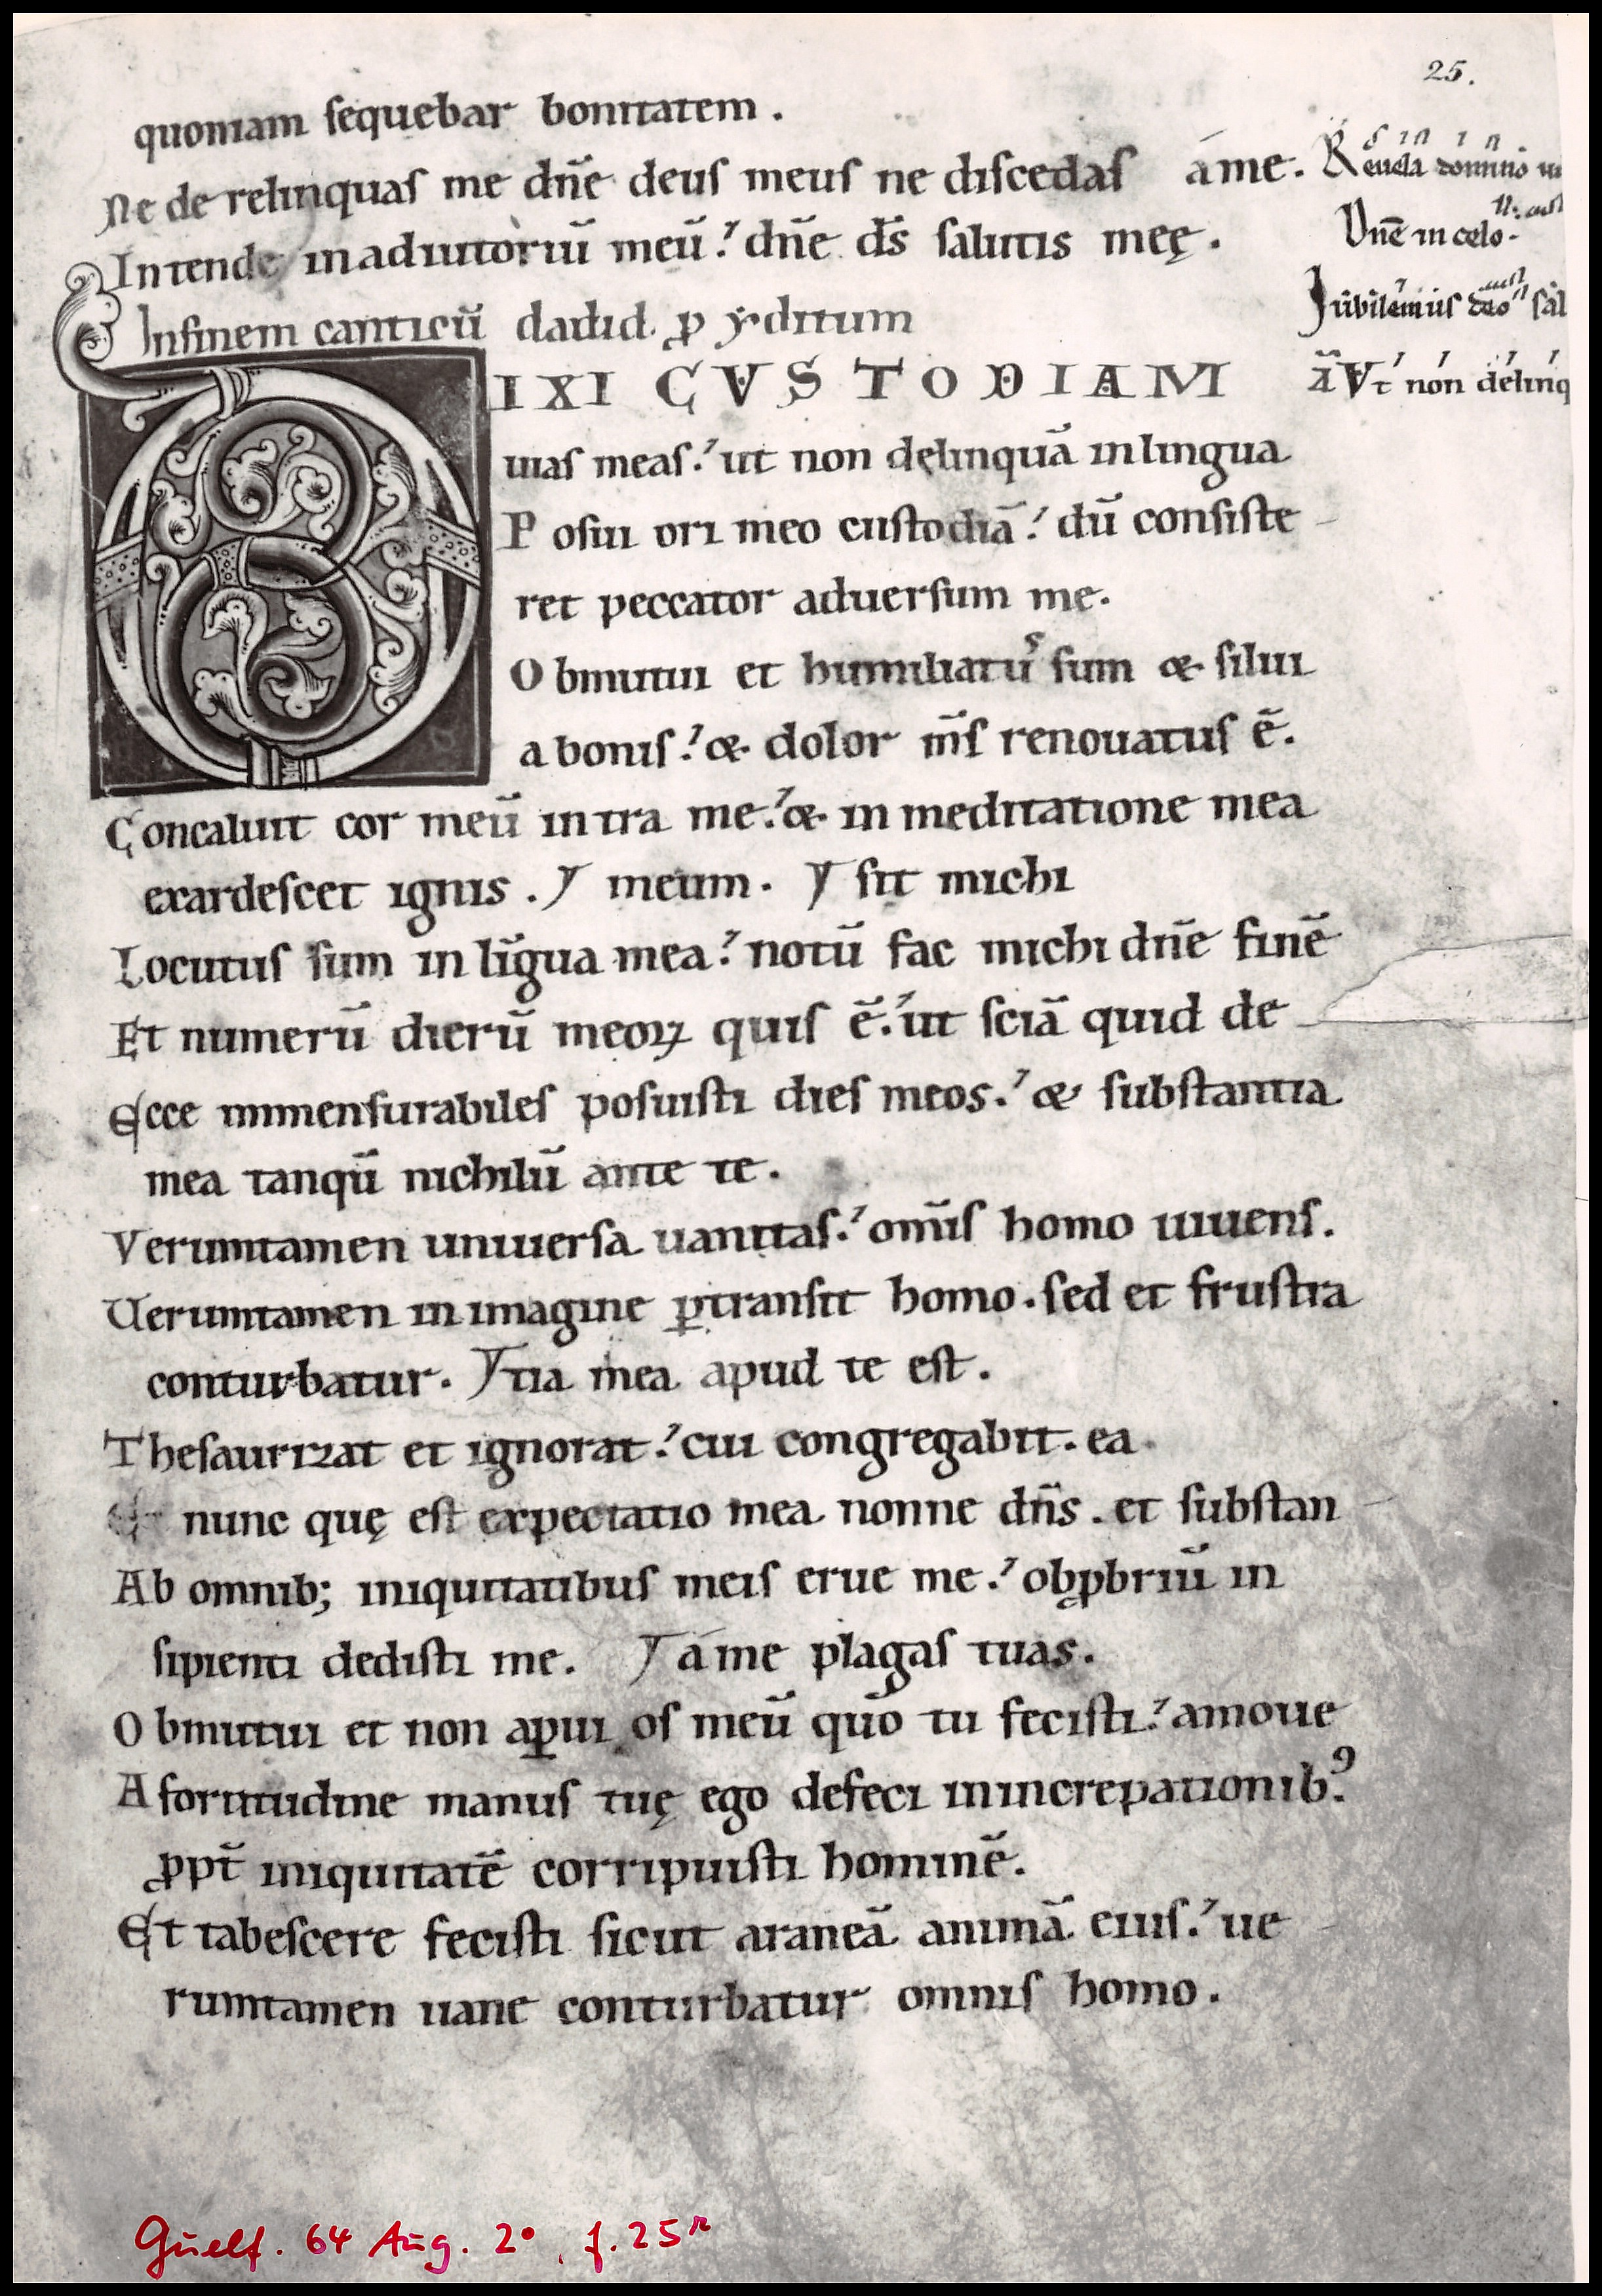 25.
quoniam sequebar bonitatem.
Ne de relinquas me dn̄e deus meus ne discedas áme.
Intende inadiutoriū meū. dn̄e ds̄ salutis meę.
Infinem canticū dauid. ꝓ yditum
IXI CVSTODIAM
uias meas. ut non delinquā inlingua
Posui ori meo custodiā. dū consiste
ret peccator aduersum me.
Obmutui et humiliatuˢ sum & silui
a bonis. & dolor ms̄ renouatus ē.
Concaluit cor meū intra me. & in meditatione mea
exardescet ignis. meum. sit michi
Locutus sum in līgua mea. notū fac michi dn̄e finē
Et numerū dierū meoꝝ quis ē. ut sciā quid de
Ecce mmensurabiles posuisti dies meos. & substantia
mea tanqū nichilū ante te.
Verumtamen uniuersa uanitas. omīs homo uiuens.
Uerumtamen in imagine ꝑtransit homo. sed et frustra
conturbatur. tia mea apud te est.
Thesaurizat et ignorat. cui congregabit. ea
Et nunc quę est expectatio mea nonne dn̄s. et substan
Ab omnib; iniquitatibus meis erue me. obꝓbriū in
sipienti dedisti me. á me plagas tuas.
Obmutui et non aꝑui os meū qūo tu fecisti. amoue
A fortitudine manus tuę ego defeci inincrepationib⁹.
ꝓpt̄ iniquitatē corripuisti hominē.
Et tabescere fecisti sicut araneā animā eius. ue
rumtamen uane conturbatur omnis homo.
Reuela domino
Dn̄e in celo.
Iubilemus deo sal
Ut non delinq
Guelf. 64 Aug. 2°, f. 25ʳ